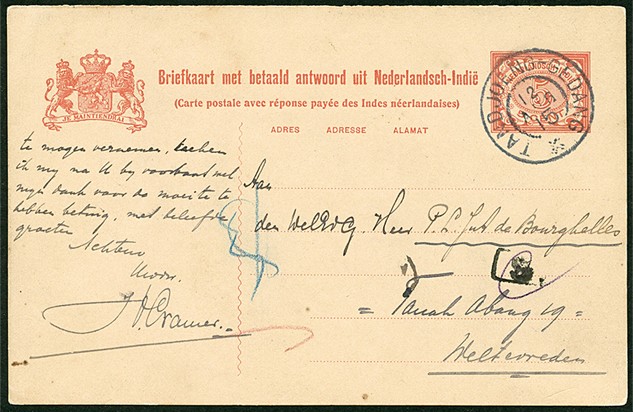 Briefkaart met betaald antwoord uit Nederlandsch-Indië
(Carte postale avec réponse payée des Indes néerlandaises)
JE MAINTIENDRAI
ADRES ADRESSE ALAMAT
TANDJOENG GEDANG
5
te mogen vernemen,
ik my na U by voorbaat wel
myn dank voor de moeite te
hebben betuig, met beleefde
groeten
Achtend
J V Cramer.
Aan
den WelEdG. Heer P. L. de Bourghelles
= Tanah Abang 19 =
Weltevreden